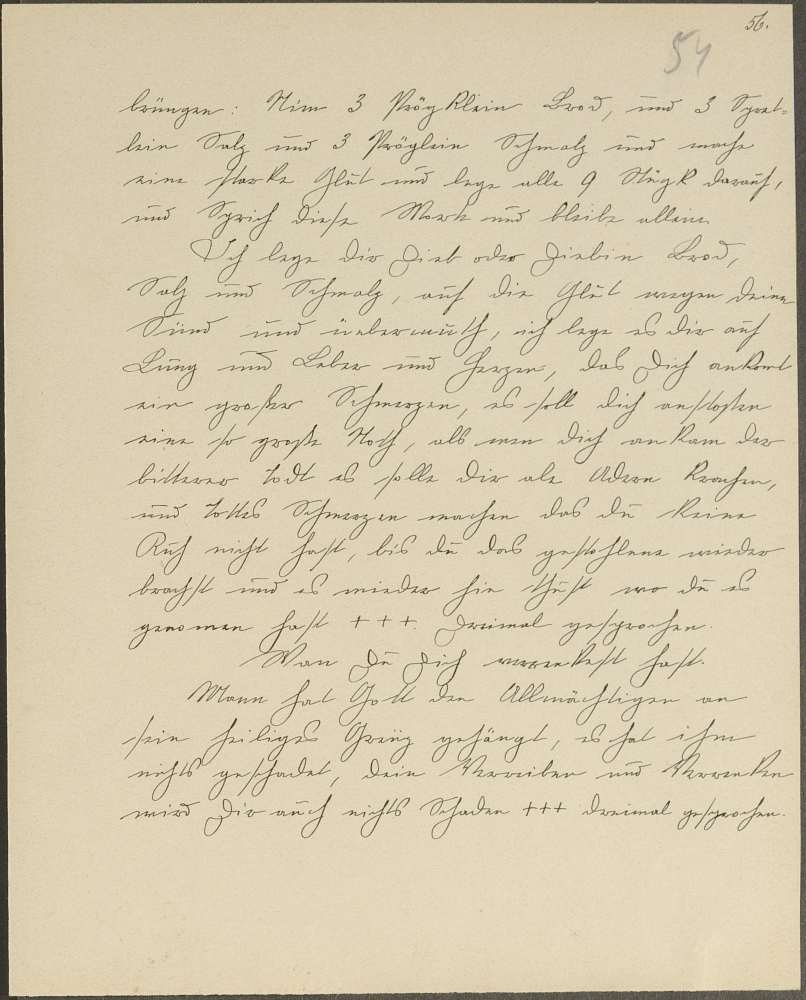 56.
54
brüngen: Nim 3 Prögklein Brod, und 3 Sprat=
lein Salz und 3 Pröglein Schmalz und mache
eine starke Glut und lege alle 9 Stügk darauf,
und Sprich diese Wort und bleibe allein.
Ich lege dir Dieb oder Diebin Brod,
Salz und Schmalz, auf die Glut wegen deine
Sünd und üebermuth, ich lege es dir auf
Lung und Leber und Herzen, das Dich ankomt
ein großer Schmerzen, es soll dich anstosten
eine so große Noth, als wen dich ankam der
bitterer Todt es solle dir ale Adern krachen,
und Todtes Schmerzen machen das du keine
Ruh nicht hast, bis du das gestohlene wieder
brachst und es wieder hin thust wo du es
genomen hast + + + Dreimal gesprochen.
Wan Du Dich verrenkest hast.
Mann hat Gott den Allmächtigen an
sein heiliges Greuz gehängt, es hat ihm
nichts geschadet, dein Verreiben und Verrenken
wird Dir auch nichts Schaden +++ dreimal gesprochen.